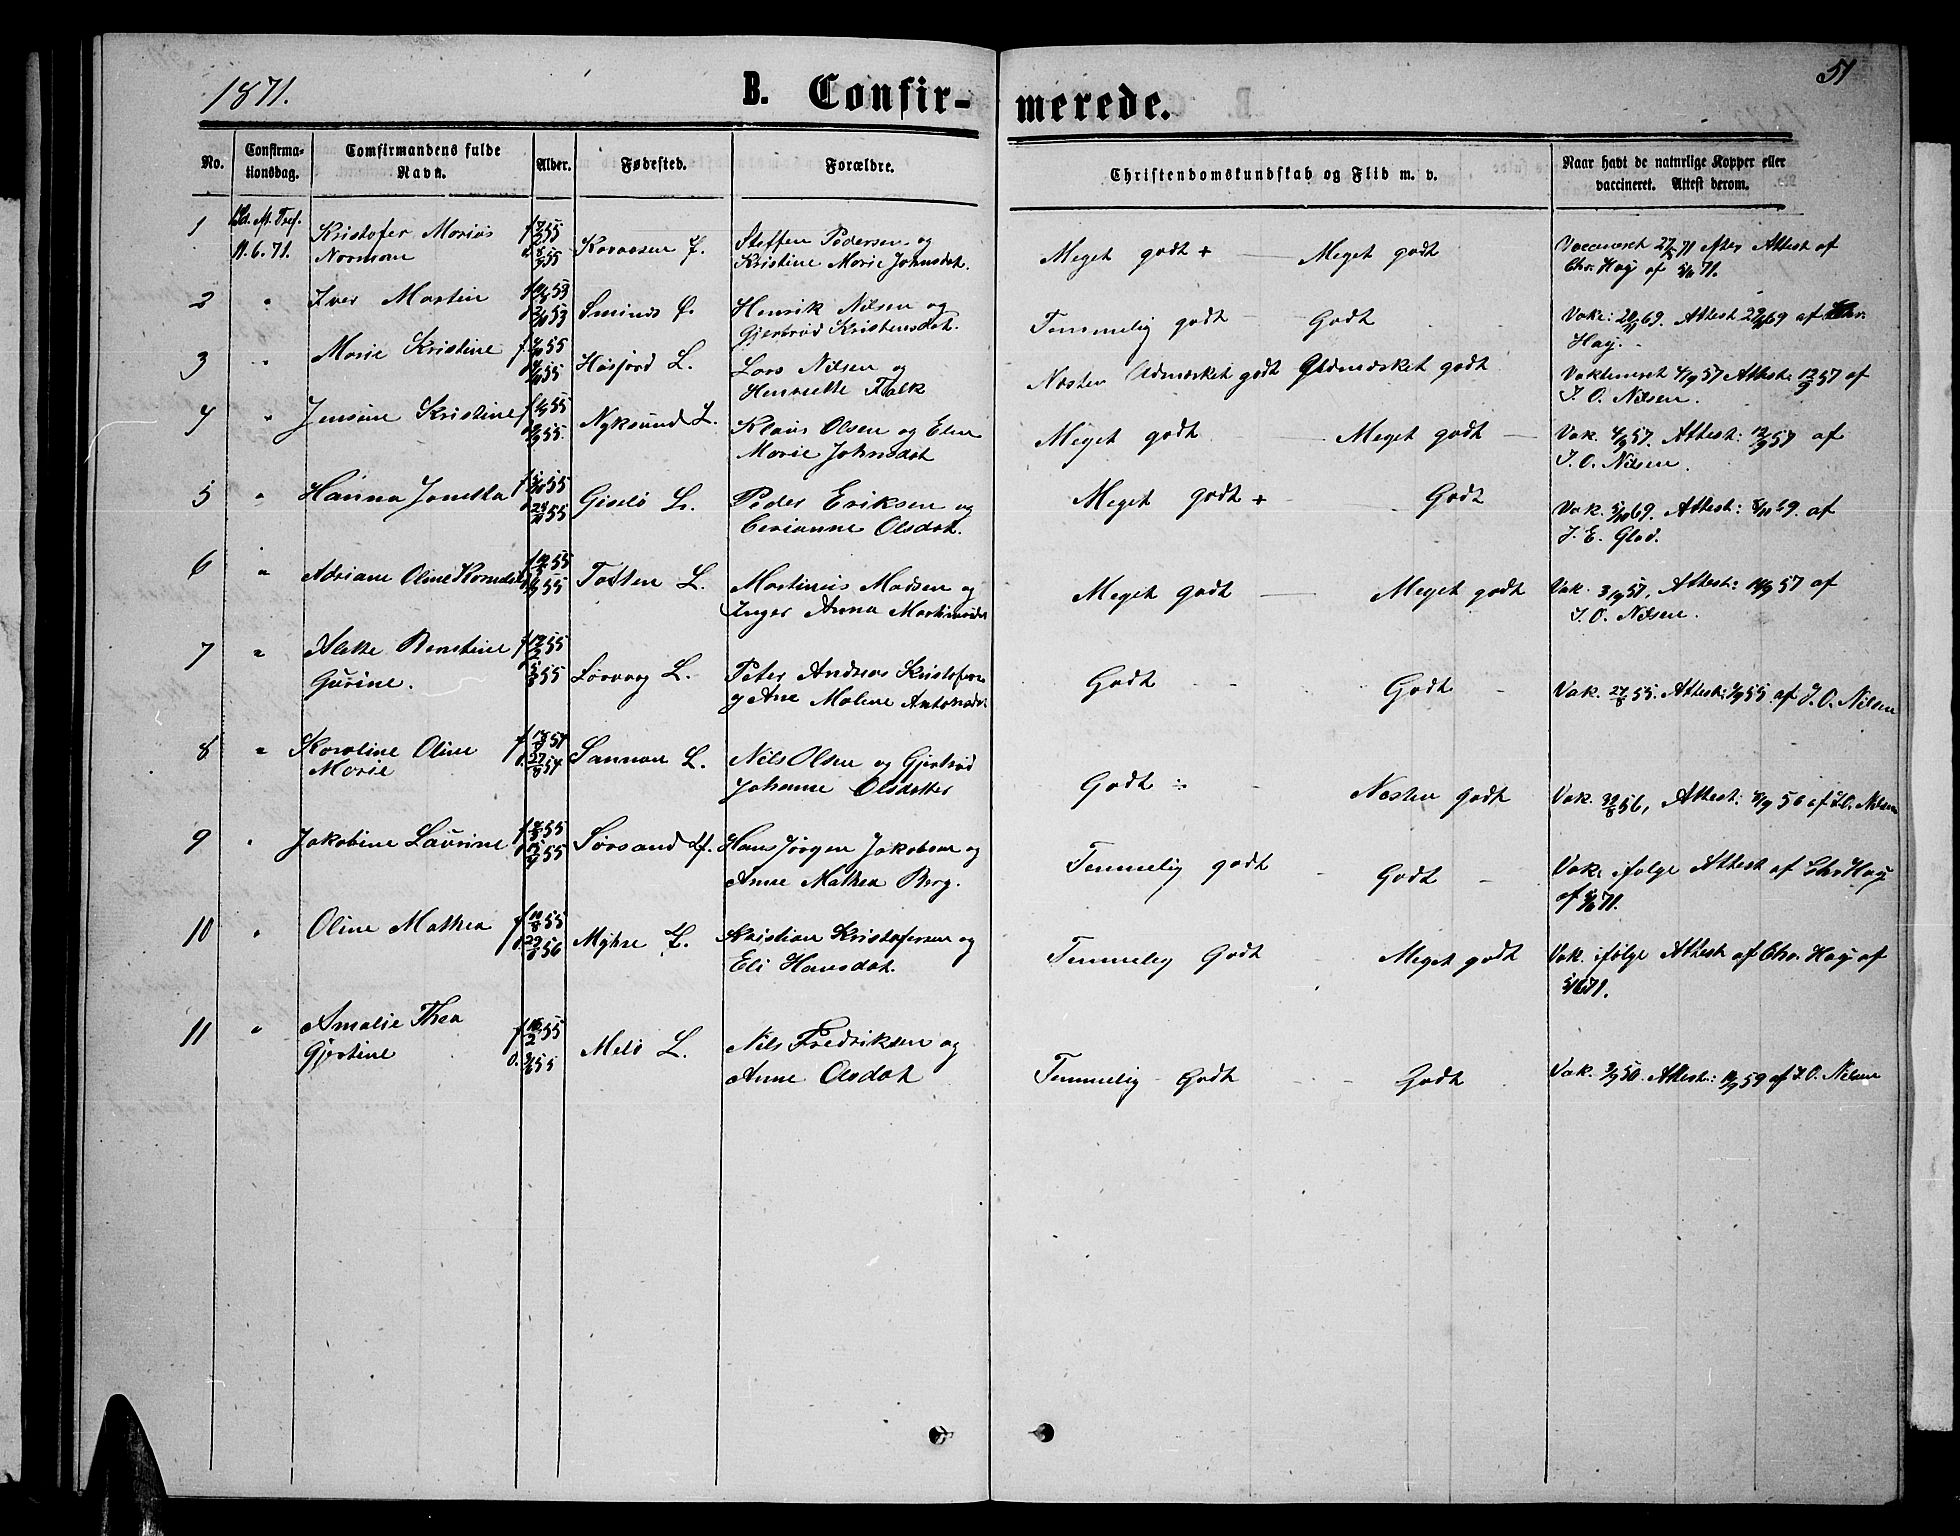 1871.
B. Confir-
merede.
51
No.
Confirma-
tionsdag.
Comfirmandens fulde
Navn.
Alder.
Fødested.
Forældre.
Christendomskundskab og Flid m. v.
Naar havt de naturlige Kopper eller
vaccineret. Attest derom.
1 Tref. Kristofer Marius Steffen Pedersen og
11.6.71. Normann Kristine Marie Johnsdat. Meget godt + Meget godt Vaccineret 27/5 71 efter Attest af
Chr. Høy af 5/6 71.
2 " Iver Martin Henrik Nilsen og
Gjertrud Kristensdat. Temmelig godt Godt Vak: 20/11 69. Attest af Chr.
Høy.
3 " Marie Kristine Høsfjord L. Lars Nilsen og
Henriette Falk Næsten Udmærket godt Udmærket godt Vakcineret 4/9 57 Attest: 12/9 57 af
J. O. Nilsen.
4 " Jensine Kristine Nyksund L. Klaus Olsen og Elen
Marie Johnsdat Meget godt Meget godt Vak. 4/9 57. Attest: 12/9 57 af
J. O. Nilsen.
5 " Hanna Jonetta Gislø L. Peder Eriksen og
Olsdat. Meget godt + Godt Vak. 5/10 69. Attest: af
J. E. Glad.
6 " Adriane Oline Hornet Totten L. Martinus Madsen og
Inger Anna Meget godt Meget godt Vak. 3/9 57, Attest: 14/9 57 af
J. O. Nilsen.
7 " Aleke Benstine 12/2 55 Peter Andreas
Gurine. og Ane Malene Godt Godt Vak. 27/8 55. Attest: af J. O. Nilsen
8 " Karoline Oline Sannan L. Nils Olsen og Gjertrud
Marie 27/8 54 Johanne Olsdatter Godt ÷ Næsten godt Vak. 56, Attest: af J. O. Nilsen
9 " Jakobine Laurine Sørsand Hans Jørgen Jakobsen og
Anne Mathea Berg. Temmelig godt Godt Vak. ifølge Attest af Chr. Høy
af 5/6 71.
10 " Oline Mathea Myhre Kristian Kristofersen og
Eli Hansdat. Temmelig Godt Meget godt Vak. ifølge Attest af Chr. Høy af
5/6 71.
11 " Amalie Thea 55 Melø L. Nils Fredriksen og
Gjertine Anne Olsdat Temmelig Godt Godt Vak. Attest: 59 af J. O. Nilsen